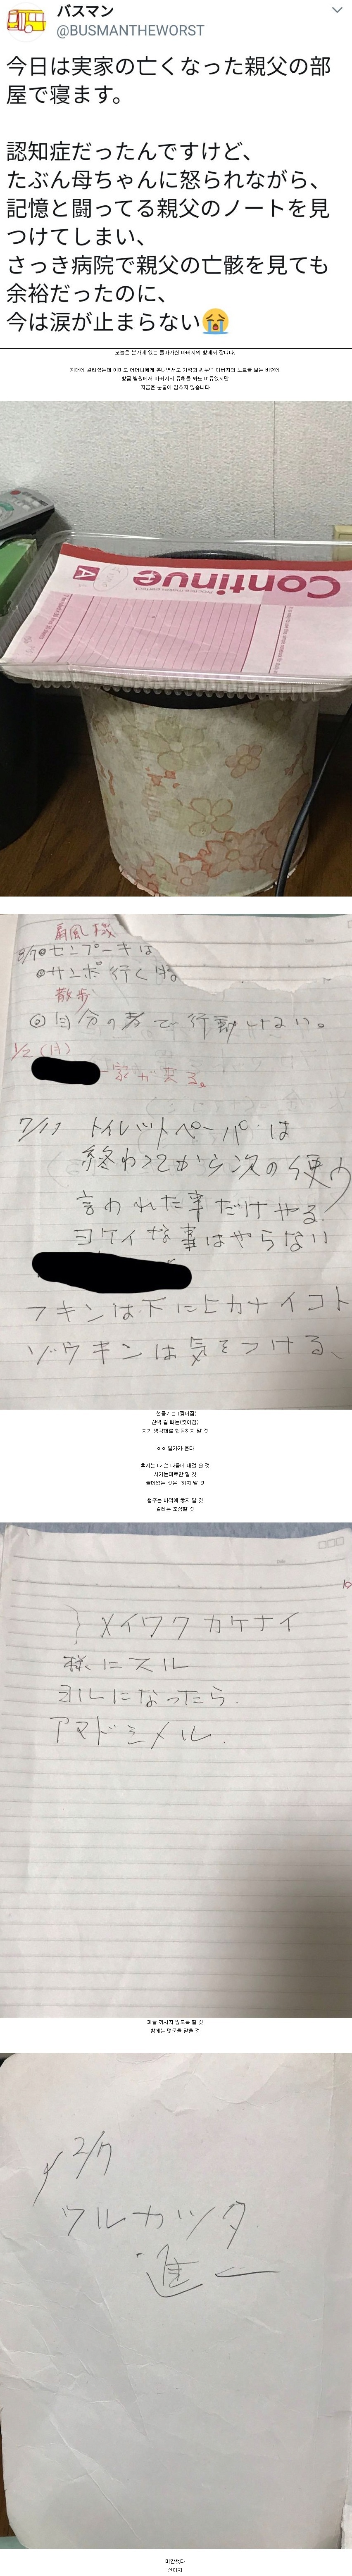 バスマン
@BUSMANTHEWORST
今日は実家の亡くなった親父の部
屋で寝ます。
認知症だったんですけど、
たぶん母ちゃんに怒られながら、
記憶と闘ってる親父のノートを見
つけてしまい、
さっき病院で親父の亡骸を見ても
余裕だったのに、
今は涙が止まらない😭
오늘은 본가에 있는 돌아가신 아버지의 방에서 잡니다.
치매에 걸리셨는데 아마도 어머니에게 혼나면서도 기억과 싸우던 아버지의 노트를 보는 바람에
방금 병원에서 아버지의 유해를 봐도 여유였지만
지금은 눈물이 멈추지 않습니다
Continue
A
扇風機
センプーキは
サンポ行く時。
散歩
自分の考で行動しない。
1/2(月)
家が来る。
7/11 トイレットペーパーは
終わってから次の使う
言われた事だけやる。
ヨケイな事はやらない
フキンは下にヒカナイコト
ゾウキンは気をつける、
선풍기는 (찢어짐)
산책 갈 때는(찢어짐)
자기 생각대로 행동하지 말 것
ㅇㅇ 일가가 온다
휴지는 다 쓴 다음에 새걸 쓸 것
시키는대로만 할 것
쓸데없는 짓은 하지 말 것
행주는 바닥에 놓지 말 것
걸레는 조심할 것
メイワクカケナイ
様にスル
ヨルになったら.
アマドシメル.
폐를 끼치지 않도록 할 것
밤에는 덧문을 닫을 것
2/7
ワルカッタ
進一
미안했다
신이치